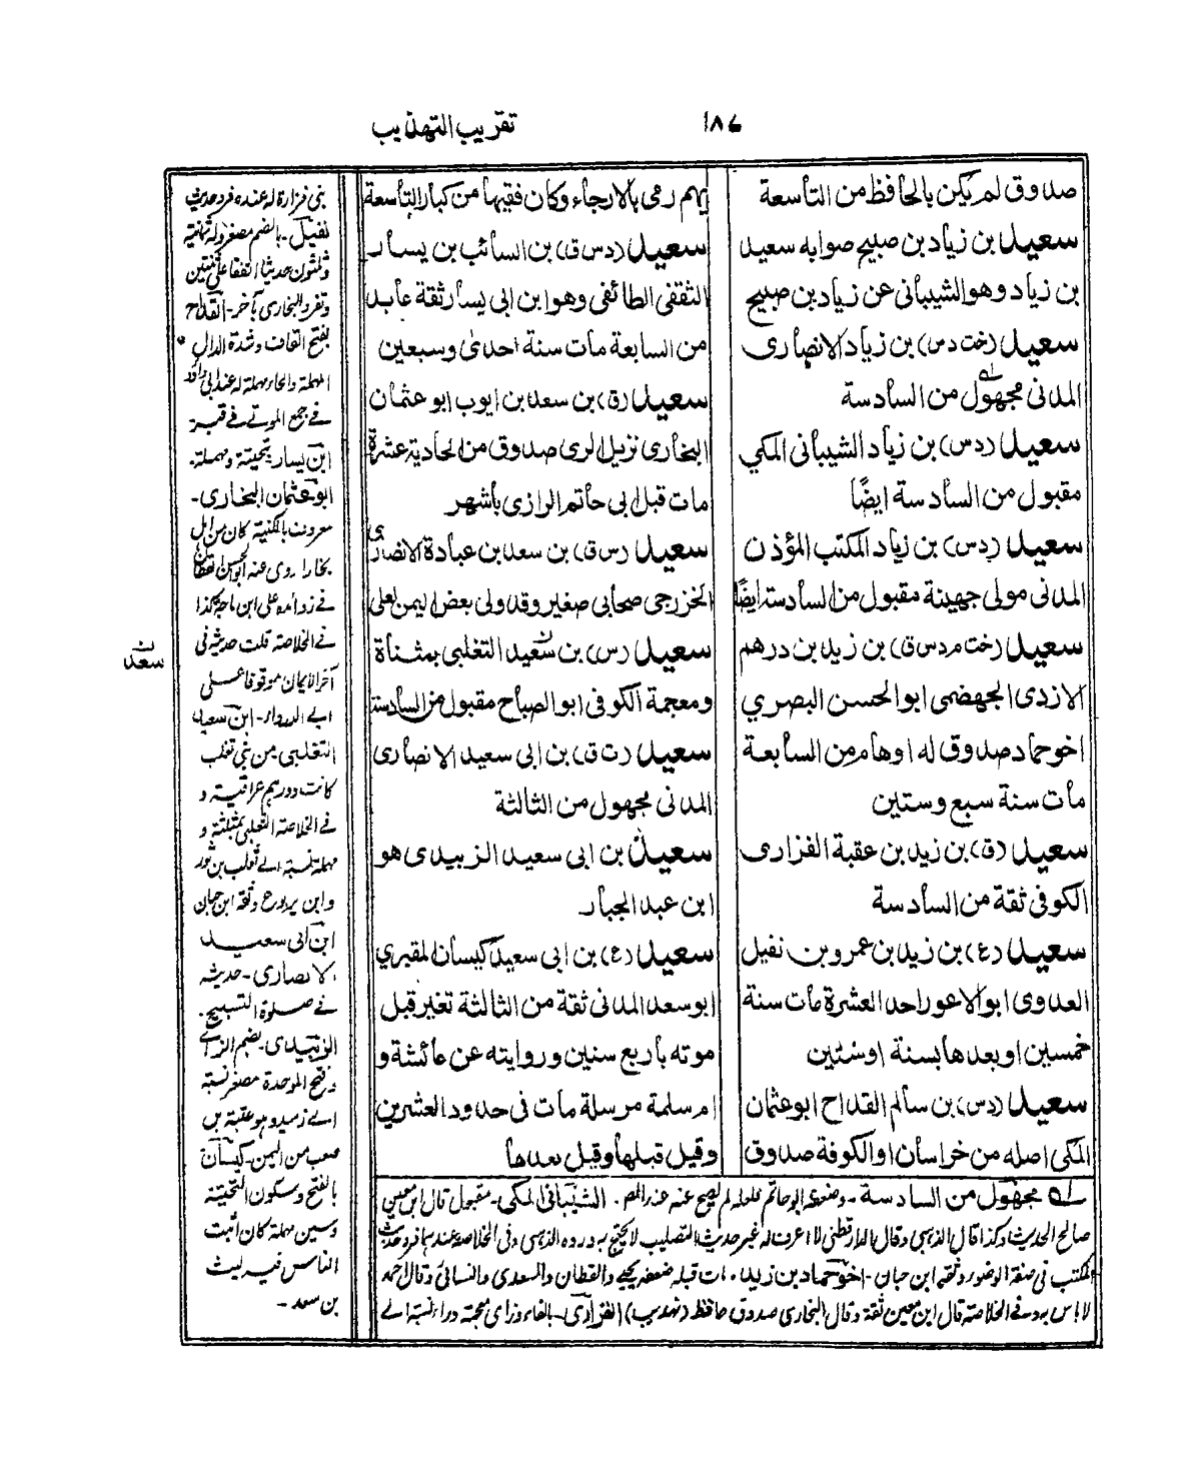 ١٨٦
تقريب التهذيب
صدوق لم يكن بالحافظ من التاسعة
سعيد بن زياد بن صبيح صوابه سعيد
بن زياد وهو الشيباني عن زياد بن صبيح
سعيد (خت دس) بن زياد الانصاري
المدني مجهول من السادسة
سعيد (دس) بن زياد الشيباني المكي
مقبول من السادسة ايضًا
سعيد (دس) بن زياد المكتب المؤذن
المدني مولى جهينة مقبول من السادسة ايضًا
سعيد (خت م دس ق) بن زيد بن درهم
الازدى الجهضمى ابو الحسن البصري
اخو حماد صدوق له اوهام من السابعة
مات سنة سبع وستين
سعيد (ق) بن زيد بن عقبة الفزارى
الكوفى ثقة من السادسة
سعيد (ع) بن زيد بن عمرو بن نفيل
العدوى ابو الاعور احد العشرة مات سنة
خمسين او بعدها بسنة او سنتين
سعيد (دس) بن سالم القداح ابو عثمان
المكى اصله من خراسان او الكوفة صدوق
يهم رمى بالارجاء وكان فقيها من كبار التاسعة
سعيد (دس ق) بن السائب بن يسار
الثقفى الطائفى وهو ابن ابى يسار ثقة عابد
من السابعة مات سنة احدى وسبعين
سعيد (ق) بن سعد بن ايوب ابو عثمان
البخارى نزيل الرى صدوق من الحادية عشرة
مات قبل ابى حاتم الرازى باشهر
سعيد (س ق) بن سعد بن عبادة الانصارى
الخزرجى صحابى صغير وقد ولى بعض اليمن لعلى
سعيد (س) بن سعيد التغلبى بمثناة
ومعجمة الكوفى ابو الصباح مقبول من السادسة
سعيد (ت ق) بن ابى سعيد الانصارى
المدنى مجهول من الثالثة
سعيد بن ابى سعيد الزبيدى هو
ابن عبد الجبار
سعيد (ع) بن ابى سعيد كيسان المقبري
ابو سعد المدنى ثقة من الثالثة تغير قبل
موته باربع سنين وروايته عن عائشة و
ام سلمة مرسلة مات فى حدود العشرين
وقيل قبلها وقيل بعدها
بنى فزارة له عنده فرد حديث
نفيل - بالضم مصغر وله ثمانية
وثلثون حديثا اتفقا على ثنتين
وتفرد البخارى بآخر - القداح
بفتح القاف وشدة الدال
المهملة والحاء مهملة له عند ابى داؤد
فى جمع الموتى فى قبر
ابن يسار بتحتية ومهملة -
ابو عثمان البخارى -
معروف بالكنية كان من اهل
بخارا روى عنه ابو الحسن القطان
فى زوائده على ابن ماجة كذا
فى الخلاصة قلت حديثه فى
آخر الايمان موقوفا على
ابى الدرداء - ابن سعيد
التغلبى من بنى تغلب
كانت دورهم عراقية و
فى الخلاصة الثعلبى بمثلثة و
مهملة نسبة الى ثعلب بن ثور
وابن يربوع وثقه ابن حبان
ابن ابى سعيد
الانصارى - حديثه
فى صلوة التسبيح -
الزبيدى - بضم الزاى
وفتح الموحدة مصغر نسبة
الى زبيد وهو عتبة بن
صعب من اليمن - كيسان
بالفتح وسكون التحتية
وسين مهملة كان اثبت
الناس فيه ليث
بن سعد -
سعدن
له مجهول من السادسة - وضعفه ابو حاتم لعله لم يصح عنه عند المص - الشيبانى المكى - مقبول قال ابن معين
صالح الحديث وكذا قال الذهبى وقال الدارقطنى لا اعرف له غير حديث التصليب لا يحتج به ورده الذهبى وفى الخلاصة عندهما فرد حديث
المكتب فى صفة الوضوء وثقه ابن حبان - اخو حماد بن زيد - مات قبله ضعفه يحيى والقطان والسعدى والنسائى وقال احمد
لا باس به وفى الخلاصة قال ابن معين ثقة وقال البخارى صدوق حافظ (تهذيب) الفزارى - بالفاء وزاى معجمة وراء نسبة الى